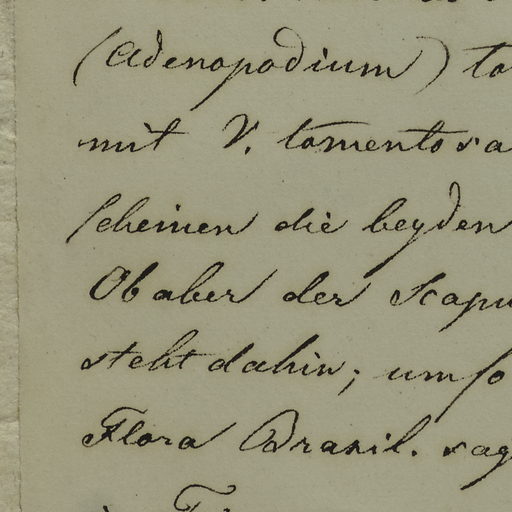 (Adenopodium) to
mit V. tomentosa
scheinen die beyden
Ob aber der Scapu
steht dahin; umso
Flora Brasil. sag